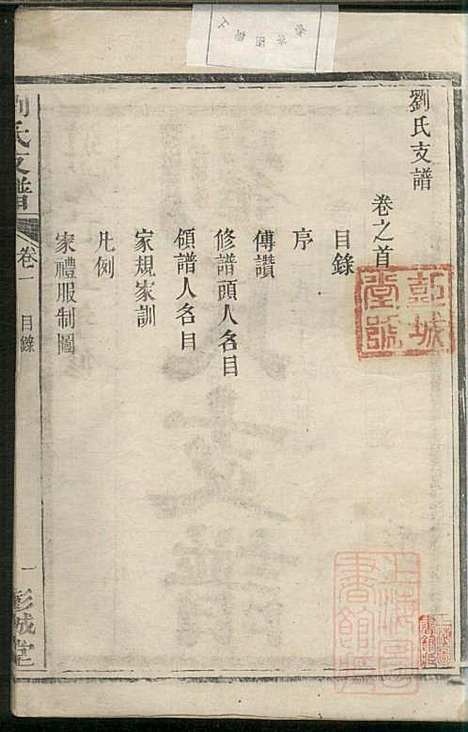 劉氏支譜
卷之首
目錄
序
傳讚
修譜頭人名目
領譜人名目
家規家訓
凡例
家禮服制圖
劉氏支譜
卷一
目錄
一
彭城堂
彭城
堂號
上海圖
書館